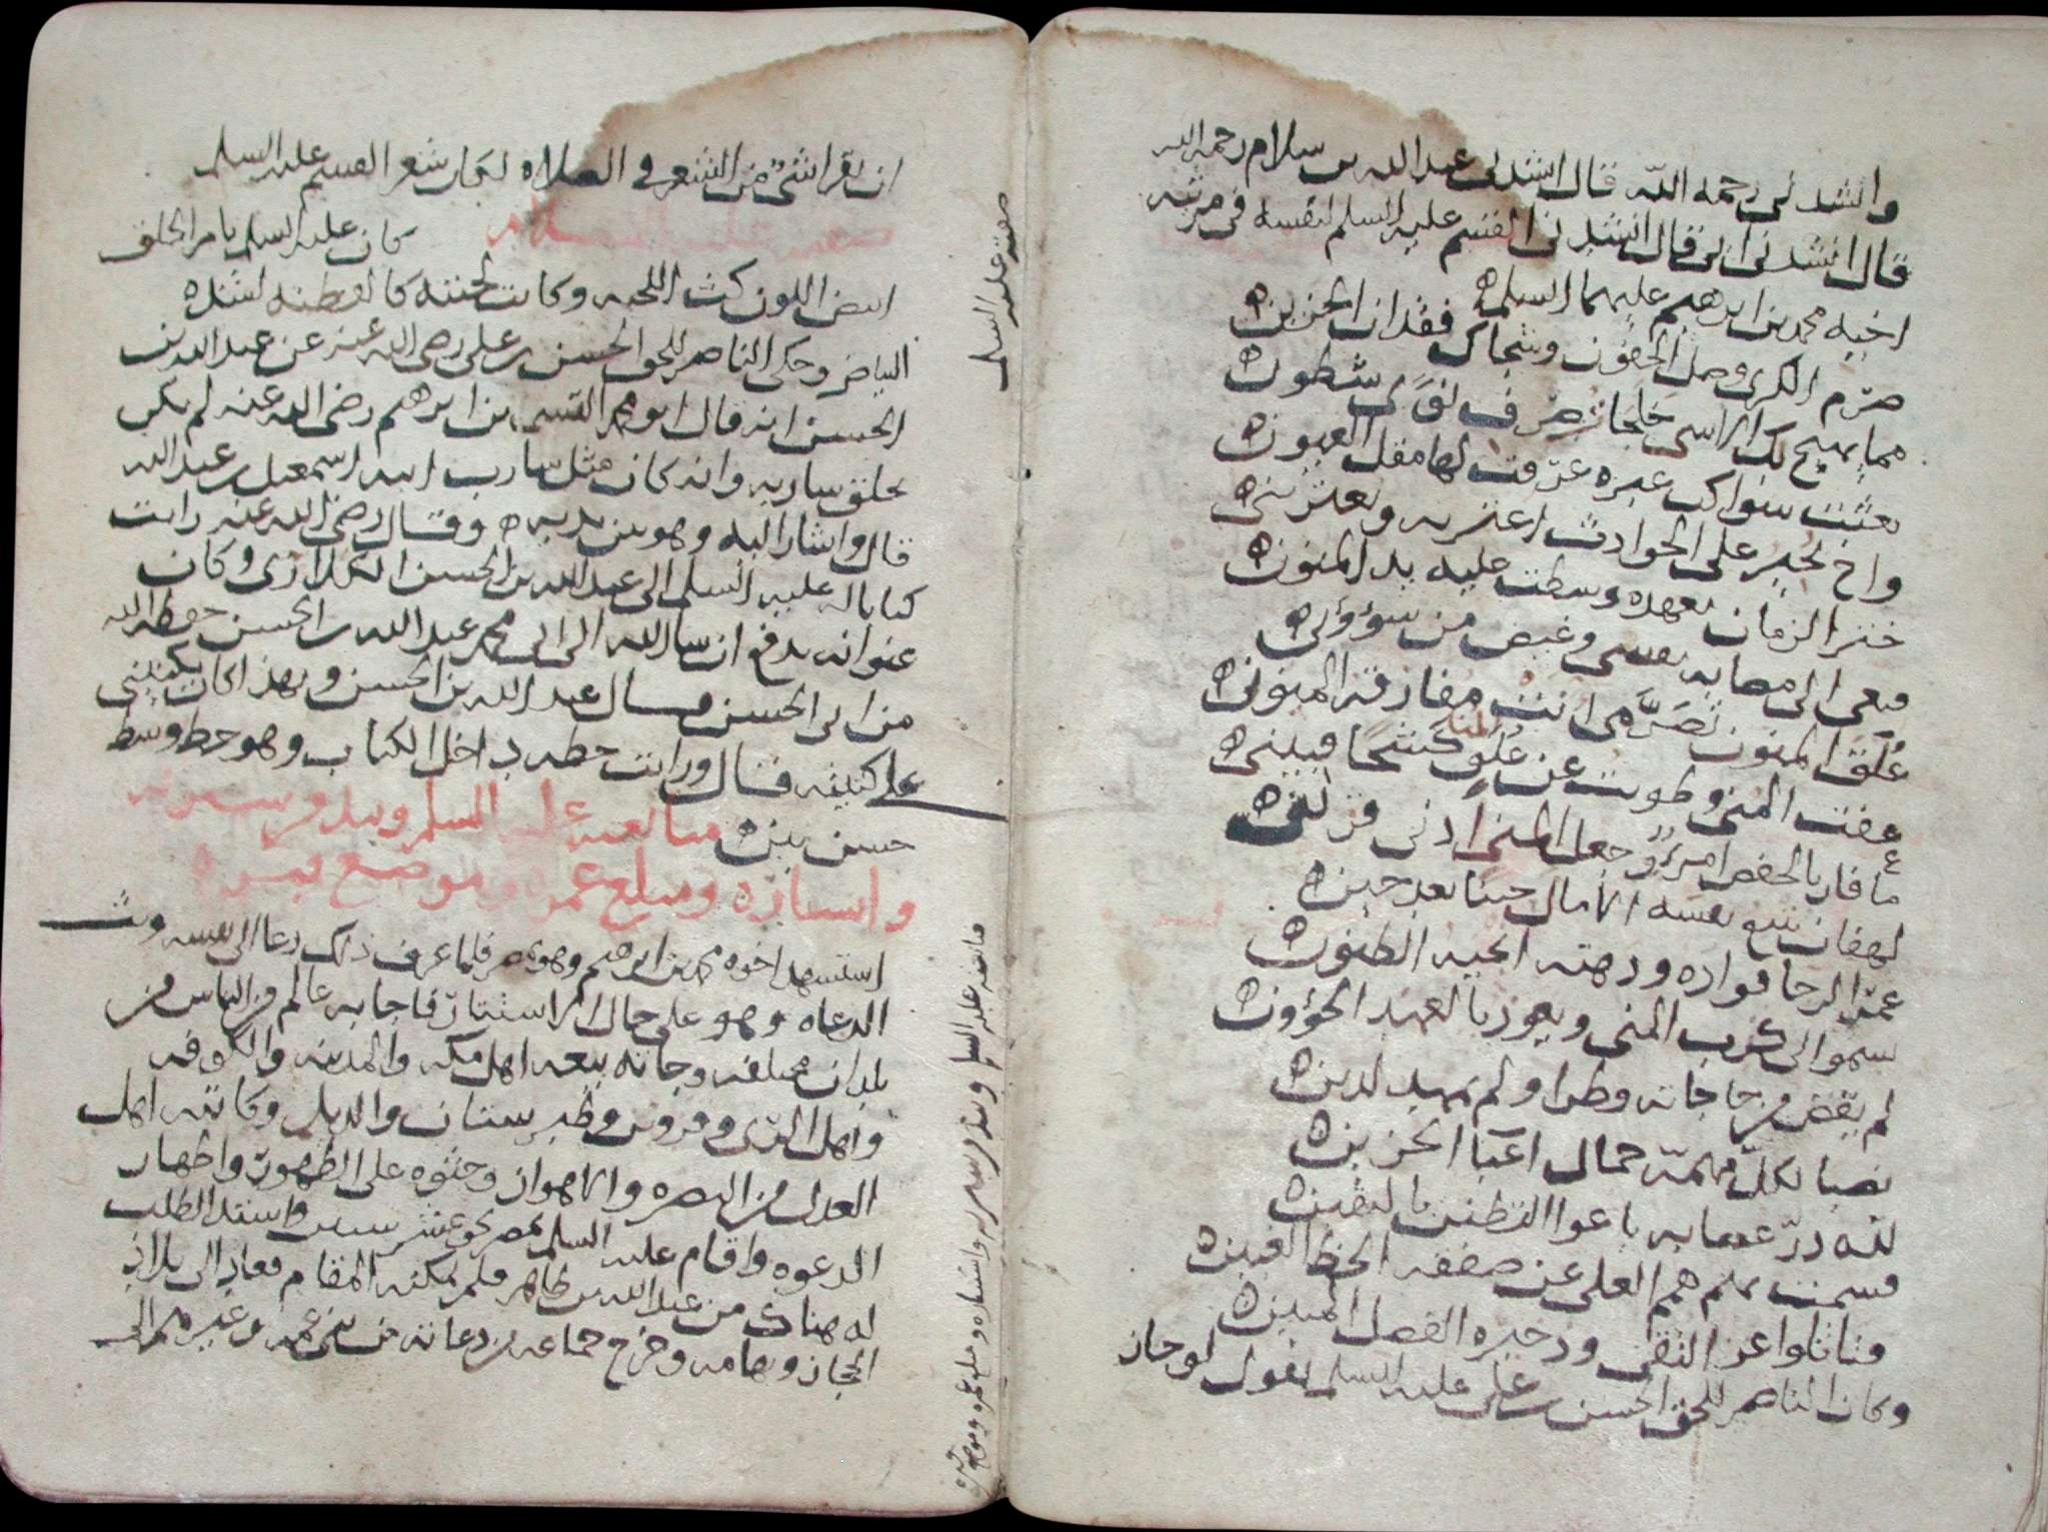 وانشدني رحمه الله قال انشدني عبدالله بن سلام رحمه الله
قال انشدني ابي قال انشدني القسم عليه السلم لنفسه في مرثيه
اخيه محمد بن ابرهيم عليهما السلم
صرم الكرى وصل الجفون وشجاك فقدان الحزين
مما يهيج لك الاسى خلجات صرف نوى شطون
بعثت سواكب عبره غرقت لها مقل العيون
واخ يجير على الحوادث اعتريه ويعتريني
ختر الزمان بعهده وسطت عليه يد المنون
فبقى الى مصابه نفسي وغيض من شؤوني
علق المنون تصرمى انت مفارقه المنون
عفت المنى وطويت عن علق المنا كشحا فبيني
ما قاد بالخفض امرؤ جعل المنى ادنى قرين
لهفان تتبع نفسه الامال حينا بعد حين
عمر الرجا فواده ودهته انجيه الظنون
سموا الى كرب المنى ويعوذ بالعهد الخؤون
لم يقض من حاجاته وطرا ولم يمهد لدين
نصبا لكل مهمة حمال اعبا الحزين
لله در عصابه باعوا التظنن باليقين
فسمت بهم همم العلى عن صفقه الحظ الغبين
وتاثلوا عز التقى وذخيره الفضل المبين
وكان الناصر للحق الحسن بن علي عليه السلم يقول لو جاز
ان يقرا شي من الشعر في الصلاه لكان شعر القسم عليه السلم
صفته عليه السلام كان عليه السلم تام الخلق
ابيض اللون كث اللحيه وكانت لحيته كالقطنه لشده
البياض وحكى الناصر للحق الحسن بن علي رضي الله عنه عن عبدالله بن
الحسن انه قال ابو محمد القسم بن ابرهيم رضي الله عنه لم يكن
يحلق ساربه وانه كان مثل سارب ابنه اسمعيل بن عبدالله
قال واشار اليه وهو بين يديه وقال رضي الله عنه رايت
كتابا له عليه السلم الى عبدالله بن الحسن الكلاري وكان
عنوانه يدفع ان سا الله الى ابي محمد عبدالله بن الحسن حفظه الله
من ابي الحسن فسال عبدالله بن الحسن وبهذا كان يكنيني
على كنيته قال ورايت خطه داخل الكتاب وهو خط وسط
حسن بين مبايعته عليه السلم ونبذ من سيرته
واستتاره ومبلغ عمره وموضع قبره
استشهد اخوه محمد بن ابرهيم وهو بمصر فلما عرف ذلك دعا الى نفسه وبث
الدعاه وهو على حال الاستتار فاجابه عالم من الناس من
بلدان مختلفه وجاته بيعه اهل مكه والمدينه والكوفه
واهل الري وقزوين وطبرستان والديلم وكاتبه اهل
العدل من البصره والاهواز وحثوه على الظهور واظهار
الدعوه واقام عليه السلم بمصر نحو عشر سنين واشتد الطلب
له هناك من عبدالله بن طاهر فلم يمكنه المقام فعاد الى بلاد
الحجاز وتهامه وخرج جماعه من دعاته من بني عمه وغيرهم الى
صفته عليه السلم
مبايعته عليه السلم ونبذ من سيرته واستتاره ومبلغ عمره وموضع قبره